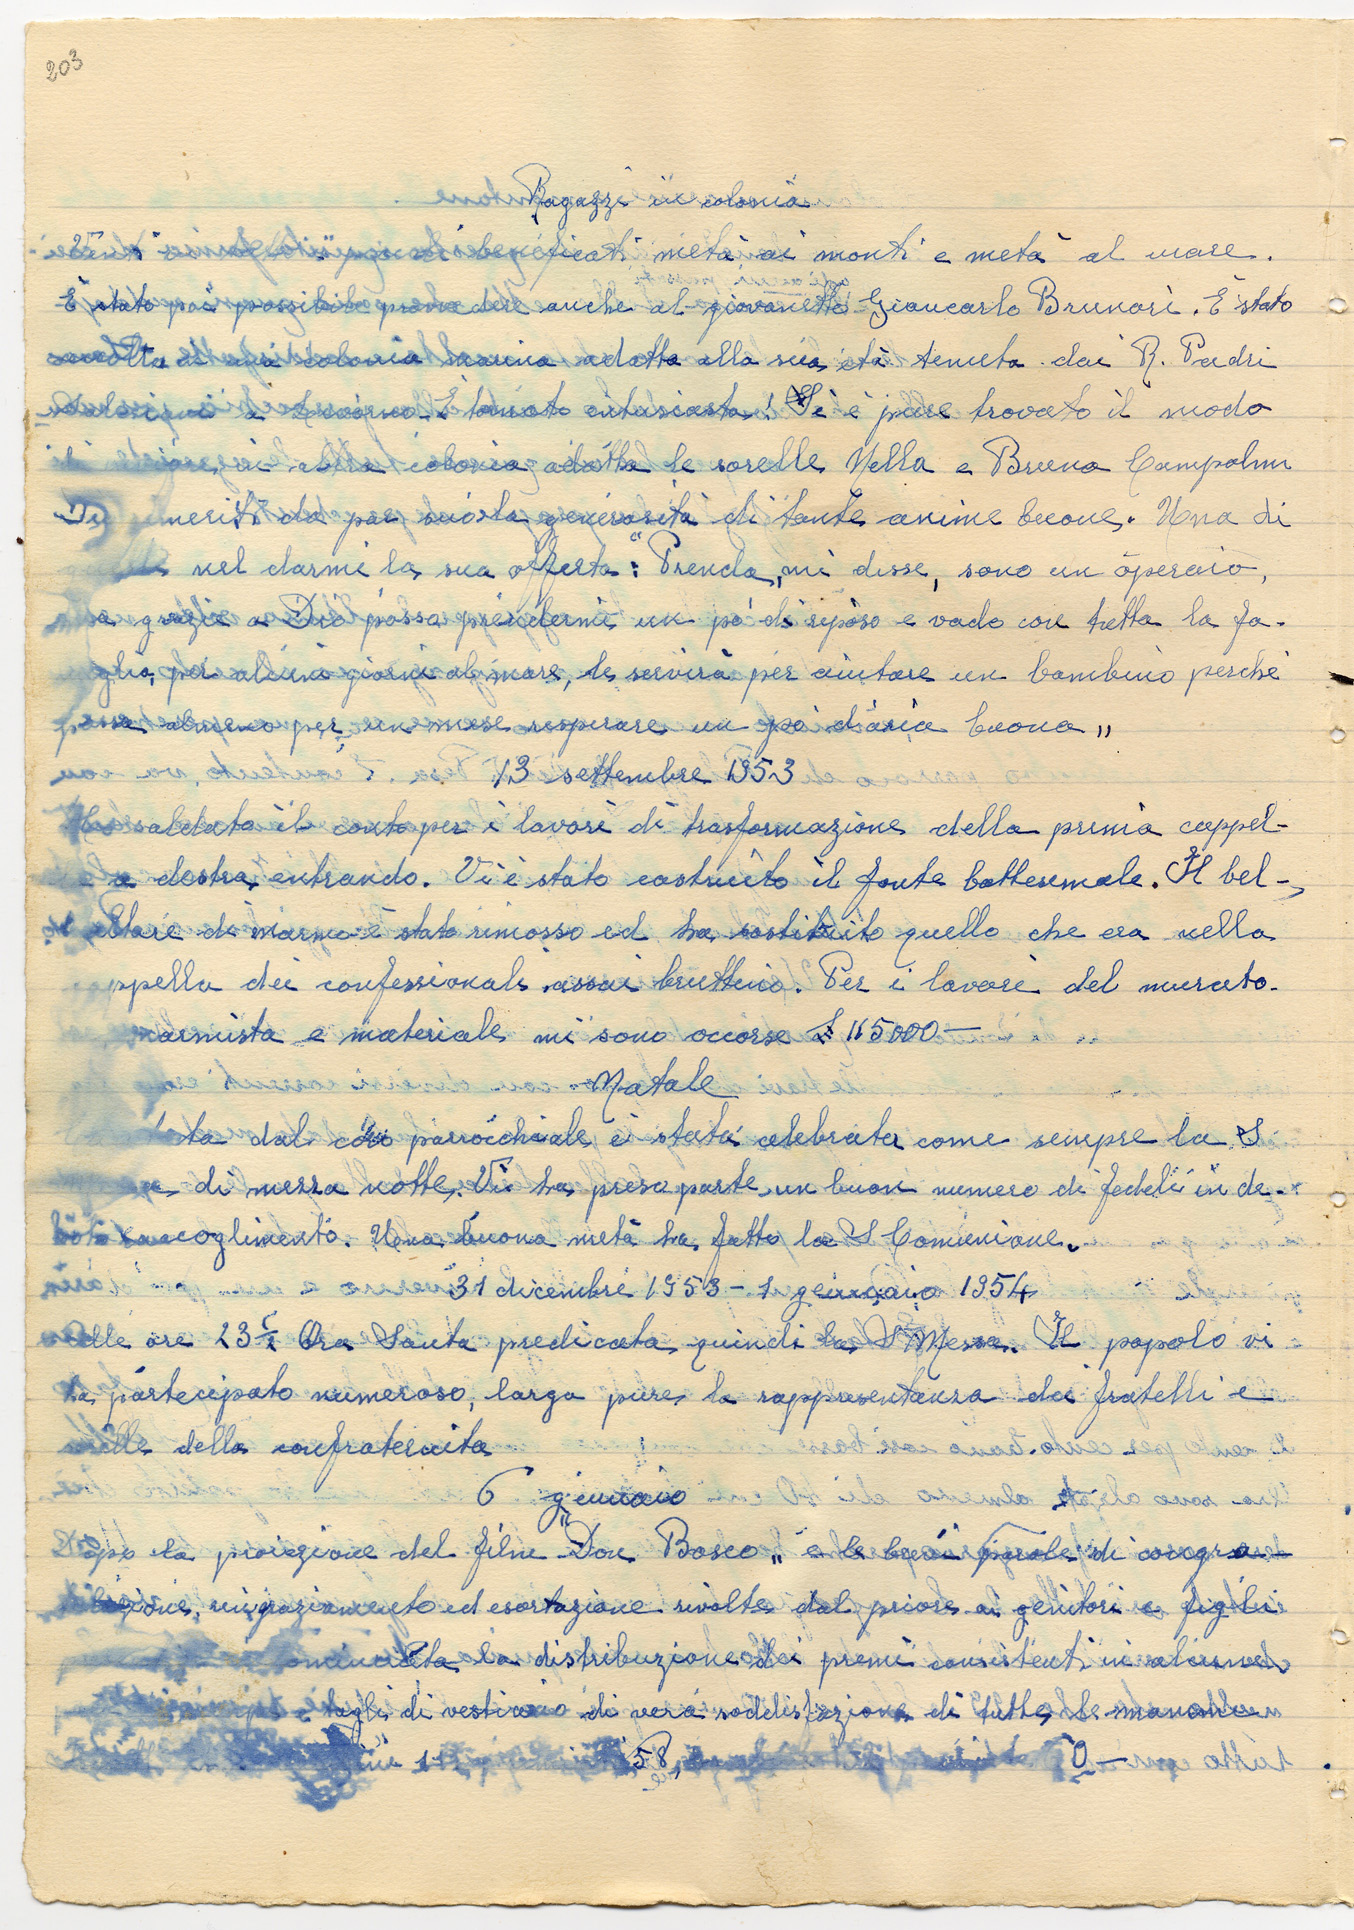 203
Ragazzi in colonia
Venti i beneficati metà ai monti e metà al mare.
È stato poi possibile provvedere anche al giovanetto Giancarlo Brunori. È stato
accolto in una colonia marina adatta alla sua età tenuta dai R. Padri
Salesiani a Livorno. È tornato entusiasta! Si è pure trovato il modo
di in altra colonia adatta le sorelle Nella e Bruna Campolmi
Dio meriti da par suo la generosità di tante anime buone. Una di
queste nel darmi la sua offerta: "Prenda, mi disse, sono un operaio,
ma grazie a Dio possa prendermi un pò di riposo e vado con tutta la fa-
glia, per alcuni giorni al mare, le servirà per aiutare un bambino perchè
possa almeno per un mese respirare un po' d'aria buona"
13 settembre 1953
Ho saldato il conto per i lavori di trasformazione della prima cappel-
a destra entrando. Vi è stato costruito il fonte battesimale. Il bel-
altare di marmo è stato rimosso ed ha sostituito quello che era nella
ppella dei confessionali assai bruttino. Per i lavori del murato-
marmista e materiale mi sono occorse £ 115000—
Natale
ta dal coro parrocchiale è stata celebrata come sempre la S
di mezza notte. Vi ha preso parte un buon numero di fedeli in de-
voto raccoglimento. Una buona metà ha fatto la S Comunione.
31 dicembre 1953 - 1 gennaio 1954
Alle ore 23 Ora Santa predicata quindi la S Messa. Il popolo vi
ha partecipato numeroso, larga pure la rappresentanza dei fratelli e
sorelle della confraternita
6 gennaio
Dopo la proiezione del film "Don Bosco" e le brevi parole di congra-
tulazione, ringraziamento ed esortazione rivolte dal priore ai genitori e figli
cominciata la distribuzione dei premi consistenti in
e tagli di vestiario di vera soddisfazione di tutte le mamme
58